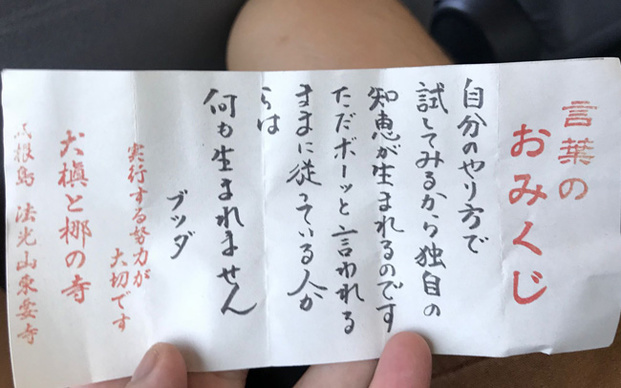 言葉の
おみくじ
自分のやり方で
試してみるから独自の
知恵が生まれるのです
ただボーッと言われる
ままに従っている人か
らは
何も生まれません
ブッダ
実行する努力が
大切です
犬槇と梛の寺
式根島 法光山東要寺